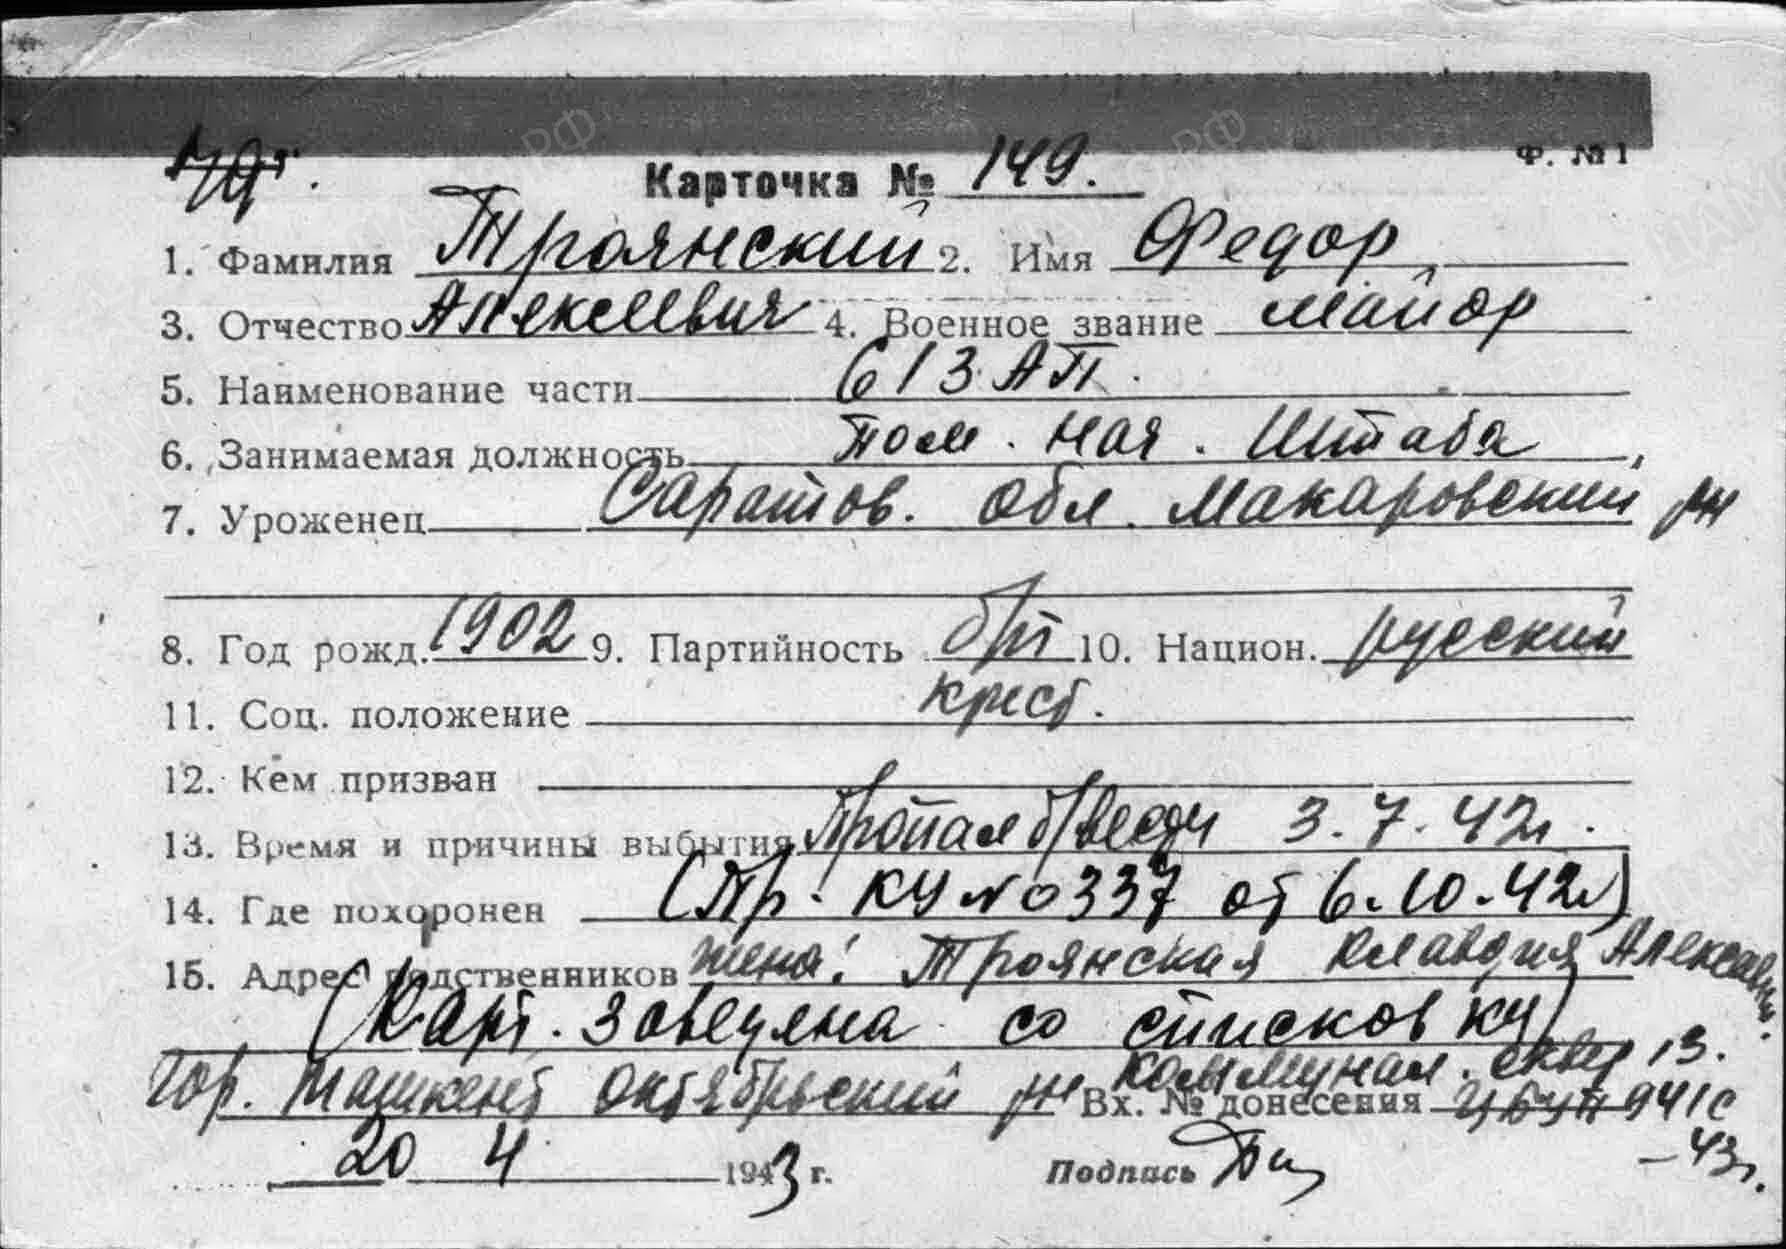 Ф. № 1
Карточка № 149.
1. Фамилия Троянский 2. Имя Федор
3. Отчество Алексеевич 4. Военное звание майор
5. Наименование части 613 АП.
6. Занимаемая должность пом. нач. штаба
7. Уроженец Саратов. обл. Макаровский рн
8. Год рожд. 1902 9. Партийность б/п 10. Национ. русский
11. Соц. положение крест.
12. Кем призван
13. Время и причины выбытия Пропал б/вести 3.7.42г.
14. Где похоронен (Пр. КУ № 0337 от 6.10.42г)
15. Адрес родственников жена: Троянская Клавдия Алексеевн.
(Карт. заведена со списков КУ)
гор. Ташкент Октябрьский рн Коммунал. сквер 13.
Вх. № донесения 941с
-43г.
20 4 1943 г. Подпись